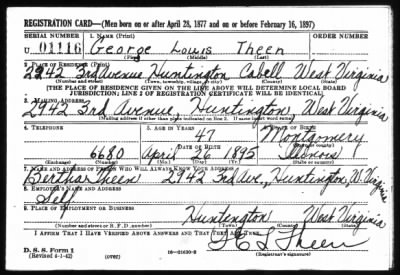 REGISTRATION CARD—(Men born on or after April 28, 1877 and on or before February 16, 1897)
SERIAL NUMBER 1. NAME (Print) ORDER NUMBER
U 01116 George Louis Theen
(First) (Middle) (Last)
2. PLACE OF RESIDENCE (Print)
2942 3rd Avenue Huntington Cabell West Virginia
(Number and street) (Town, township, village, or city) (County) (State)
[THE PLACE OF RESIDENCE GIVEN ON THE LINE ABOVE WILL DETERMINE LOCAL BOARD
JURISDICTION; LINE 2 OF REGISTRATION CERTIFICATE WILL BE IDENTICAL]
3. MAILING ADDRESS
2942 3rd Avenue, Huntington, West Virginia
[Mailing address if other than place indicated on line 2. If same insert word same]
4. TELEPHONE 5. AGE IN YEARS 6. PLACE OF BIRTH
47 Montgomery
DATE OF BIRTH (Town or county)
6680 April 26 1895 Illinois
(Exchange) (Number) (Mo.) (Day) (Yr.) (State or country)
7. NAME AND ADDRESS OF PERSON WHO WILL ALWAYS KNOW YOUR ADDRESS
Theen 2942 3rd Ave., Huntington, W. Virginia
8. EMPLOYER'S NAME AND ADDRESS
Self
9. PLACE OF EMPLOYMENT OR BUSINESS
Huntington West Virginia
(Number and street or R. F. D. number) (Town) (County) (State)
I AFFIRM THAT I HAVE VERIFIED ABOVE ANSWERS AND THAT THEY ARE TRUE.
Theen
D. S. S. Form 1
(Revised 4-1-42) (over) 16—21630-2 (Registrant's signature)